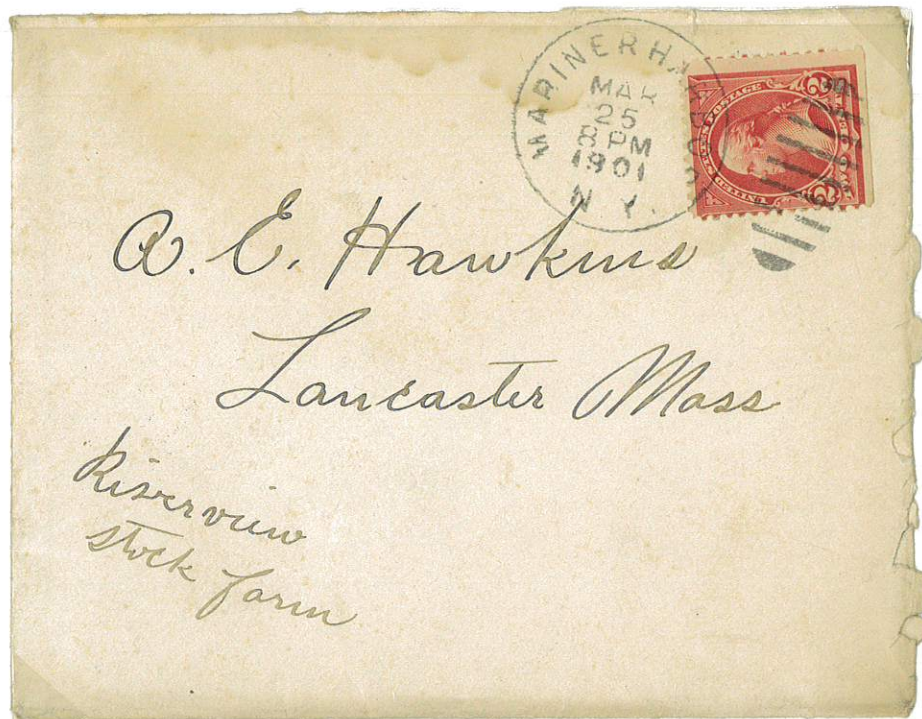 MARINER HARBOR
MAR
25
8 PM
1901
N.Y.
UNITED STATES POSTAGE
2 2
A. E. Hawkins
Lancaster Mass
Riverview
Stock farm